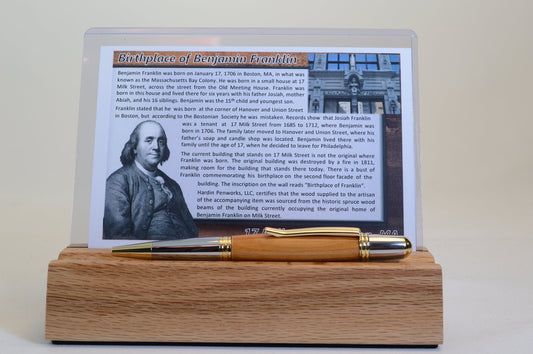 Birthplace of Benjamin Franklin
Benjamin Franklin was born on January 17, 1706 in Boston, MA, in what was
known as the Massachusetts Bay Colony. He was born in a small house at 17
Milk Street, across the street from the Old Meeting House. Franklin was
born in this house and lived there for six years with his father Josiah, mother
Abiah, and his 16 siblings. Benjamin was the 15th child and youngest son.
Franklin stated that he was born at the corner of Hanover and Union Street
in Boston, but according to the Bostonian Society he was mistaken. Records show that Josiah Franklin
was a tenant at 17 Milk Street from 1685 to 1712, where Benjamin was
born in 1706. The family later moved to Hanover and Union Street, where his
father's soap and candle shop was located. Benjamin lived there with his
family until the age of 17, when he decided to leave for Philadelphia.
The current building that stands on 17 Milk Street is not the original where
Franklin was born. The original building was destroyed by a fire in 1811,
making room for the building that stands there today. There is a bust of
Franklin commemorating his birthplace on the second floor facade of the
building. The inscription on the wall reads "Birthplace of Franklin".
Hardin Penworks, LLC, certifies that the wood supplied to the artisan
of the accompanying item was sourced from the historic spruce wood
beams of the building currently occupying the original home of
Benjamin Franklin on Milk Street.